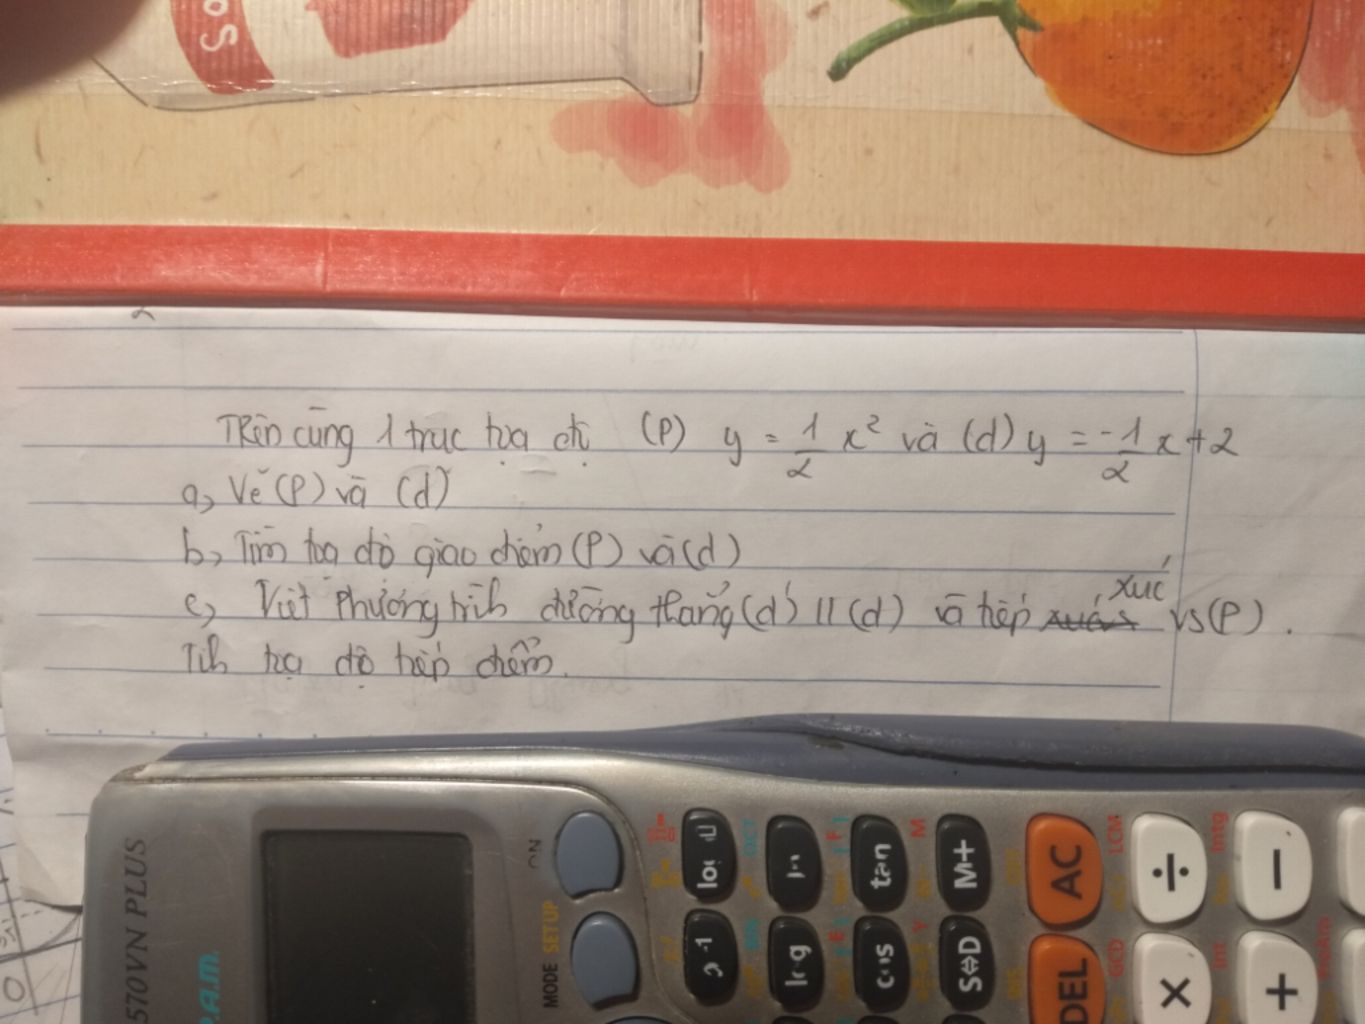 Trên cùng 1 trục tọa độ (P) y = 1/2 x² và (d) y = -1/2 x + 2
a, Vẽ (P) và (d)
b, Tìm tọa độ giao điểm (P) và (d)
c, Viết phương trình đường thẳng (d') // (d) và tiếp xúc vs (P).
Tính tọa độ tiếp điểm.
570VN PLUS
ON
MODE SETUP
tan
M+
AC
÷
−
log
cos
S⇔D
DEL
×
+
LCM
GCD
Intg
Int
OCT